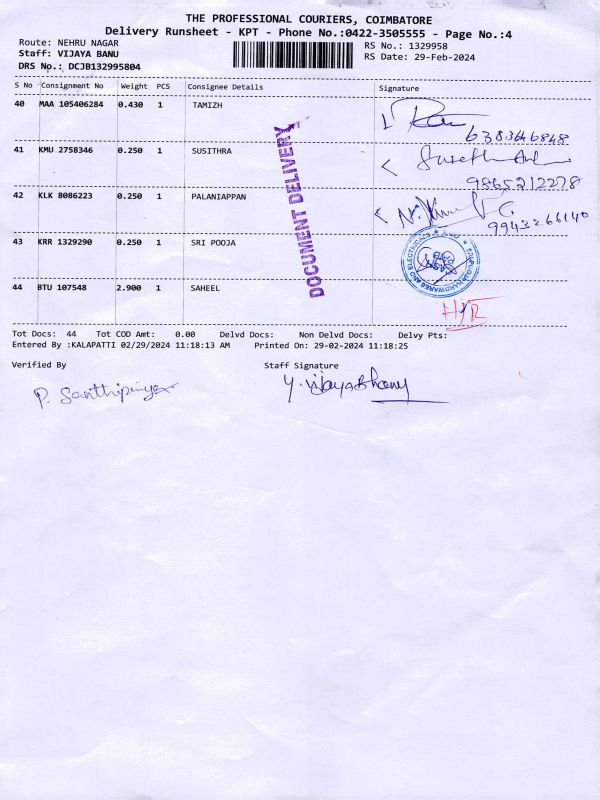 THE PROFESSIONAL COURIERS, COIMBATORE
Delivery Runsheet - KPT - Phone No.:0422-3505555 - Page No.:4
Route: NEHRU NAGAR
RS No.: 1329958
Staff: VIJAYA BANU
RS Date: 29-Feb-2024
DRS No.: DCJB132995804
S No Consignment No Weight PCS Consignee Details Signature
40 MAA 105406284 0.430 1 TAMIZH
41 KMU 2758346 0.250 1 SUSITHRA
9865212278
42 KLK 8086223 0.250 1 PALANIAPPAN
9943266140
43 KRR 1329290 0.250 1 SRI POOJA
44 BTU 107548 2.900 1 SAHEEL
DOCUMENT DELIVERY
Tot Docs: 44 Tot COD Amt: 0.00 Delvd Docs: Non Delvd Docs: Delvy Pts:
Entered By :KALAPATTI 02/29/2024 11:18:13 AM Printed On: 29-02-2024 11:18:25
Verified By Staff Signature
P. Santhipriya Y. VijayaBhanu